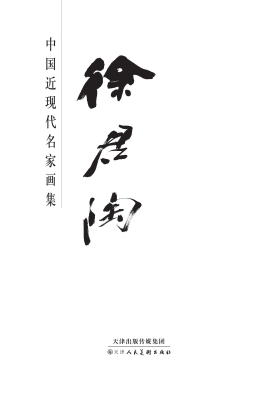 中国近现代名家画集
徐君陶
天津出版传媒集团
天津人民美术出版社